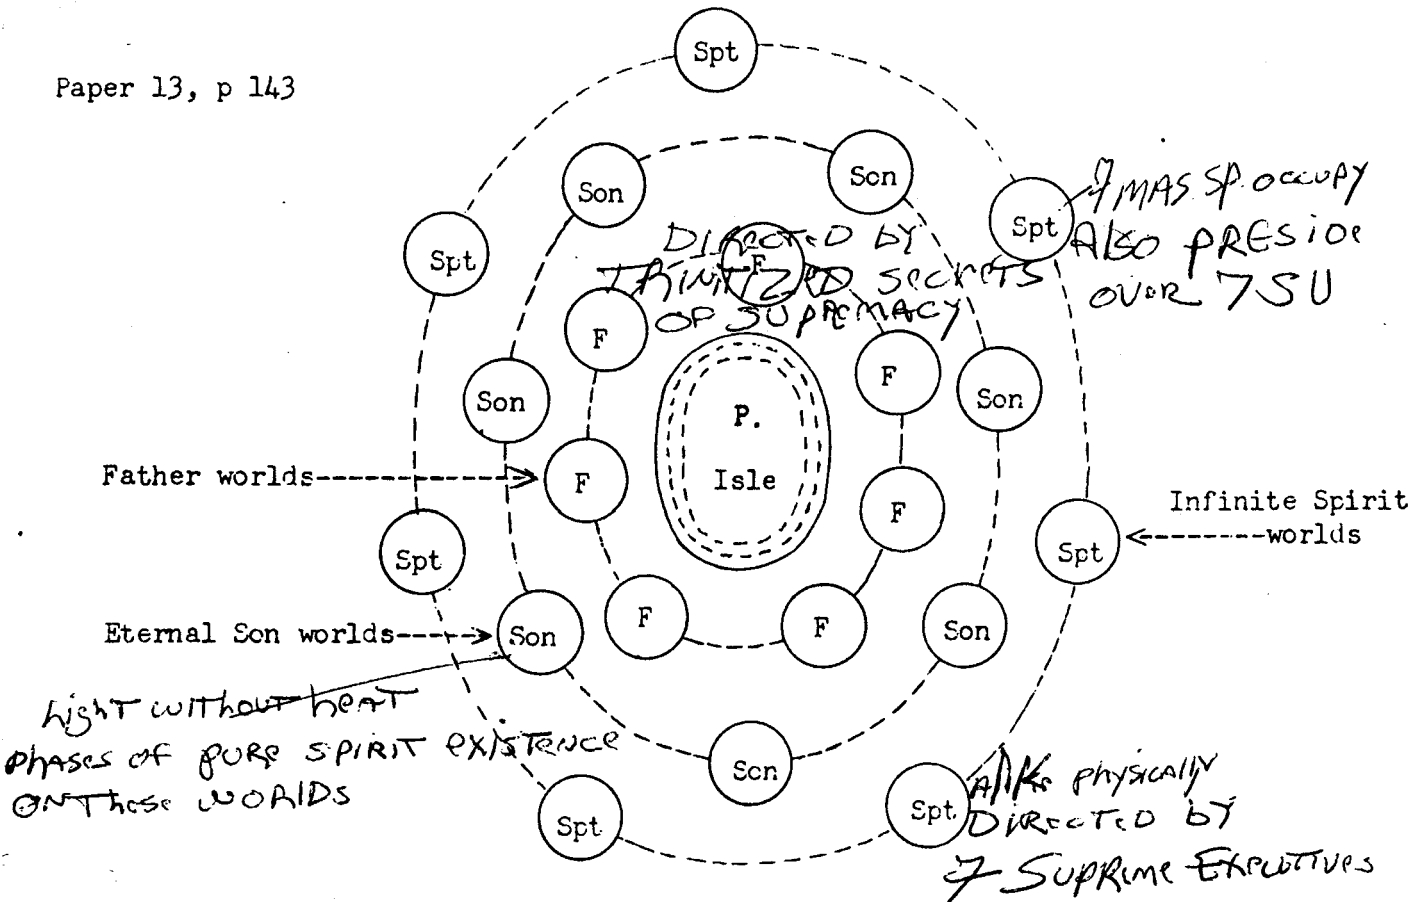 Paper 13, p 143
Spt
Son
Son
Spt
7 MAS SP. OCCUPY
Also PRESIDE
OVER 7 SU
Spt
DIRECTED BY
TRINITIZED SECRETS
OF SUPREMACY
F
F
F
Son
Son
P.
Isle
Father worlds
F
F
Infinite Spirit
worlds
Spt
Spt
Eternal Son worlds
Son
F
F
Son
Light without heat
phases of pure SPIRIT existence
ON These WORlDs
Son
Spt
Spt
Alike physically
DIRECTED BY
7 SUPREME EXECUTIVES